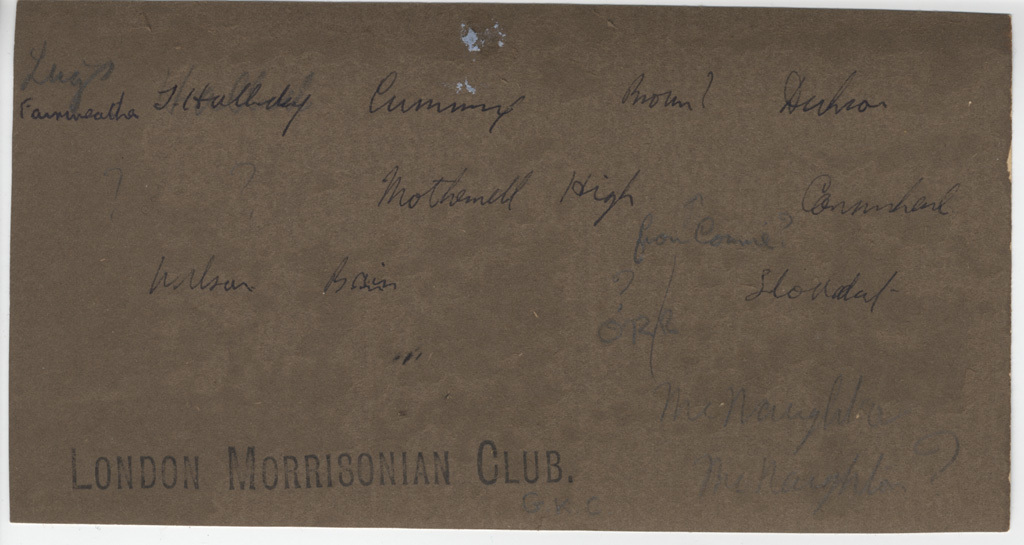 Fairweather T. Halliday Cumming Brown? Dickson
? ? Motherwell High
from Comrie?
Wilson Bain ? Stoddart
McNaughton
LONDON MORRISONIAN CLUB. McNaughton ?